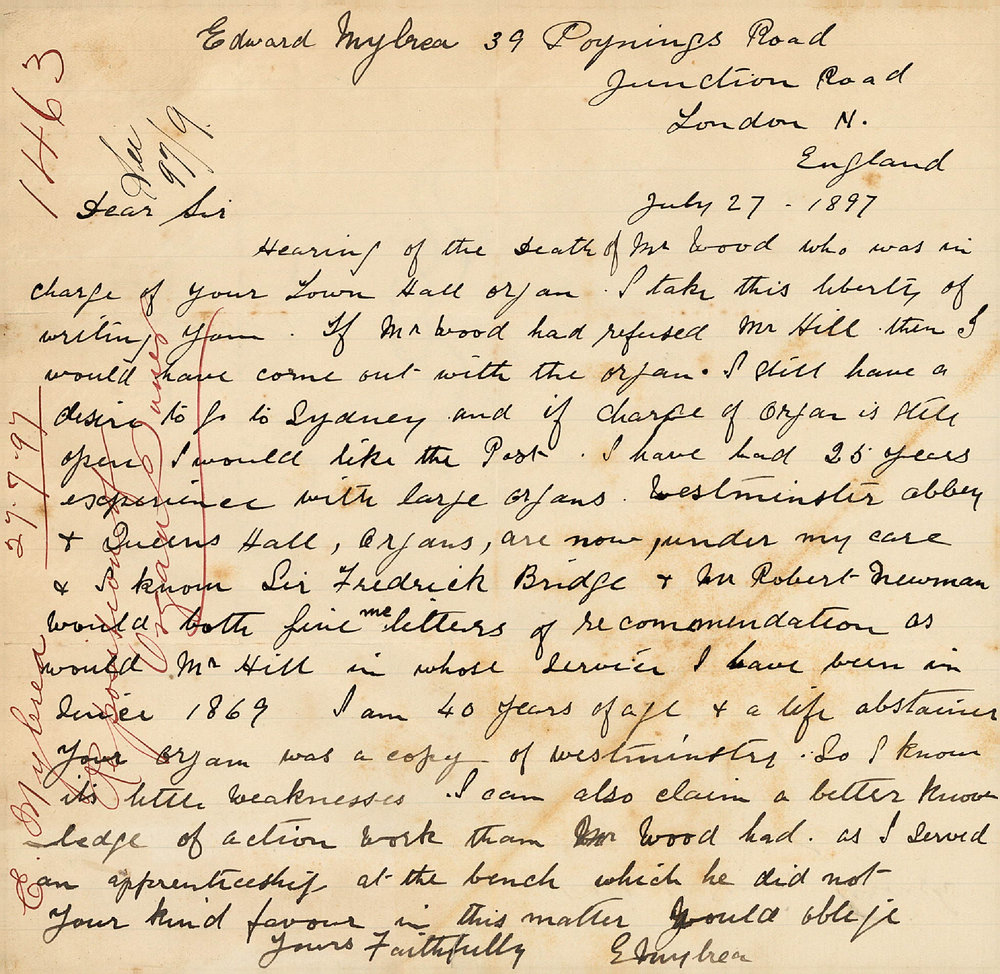 Edward Mylrea 39 Poynings Road
Junction Road
London N.
England
July 27 - 1897
1463
97/9.
Dear Sir
Hearing of the Death of Mr Wood who was in
charge of your Town Hall organ. I take this liberty of
writing you. If Mr Wood had refused Mr Hill then I
would have come out with the organ. I still have a
desire to go to Sydney and if charge of Organ is still
open I would like the Post. I have had 25 years
experience with large organs. Westminster abbey
& Queens Hall, Organs, are now, under my care
& I know Sir Fredrick Bridge & Mr Robert Newman
would both give me letters of recommendation as
would Mr Hill in whose service I have been in
since 1869 I am 40 years of age & a life abstainer
Your organ was a copy of westminster. So I know
its little weaknesses. I can also claim a better know
-ledge of action work than Mr Wood had. as I served
an apprenticeship at the bench which he did not
Your kind favour in this matter would oblige
Yours Faithfully
E Mylrea
E. Mylrea 27-7-97
for position of
Organ Tuner